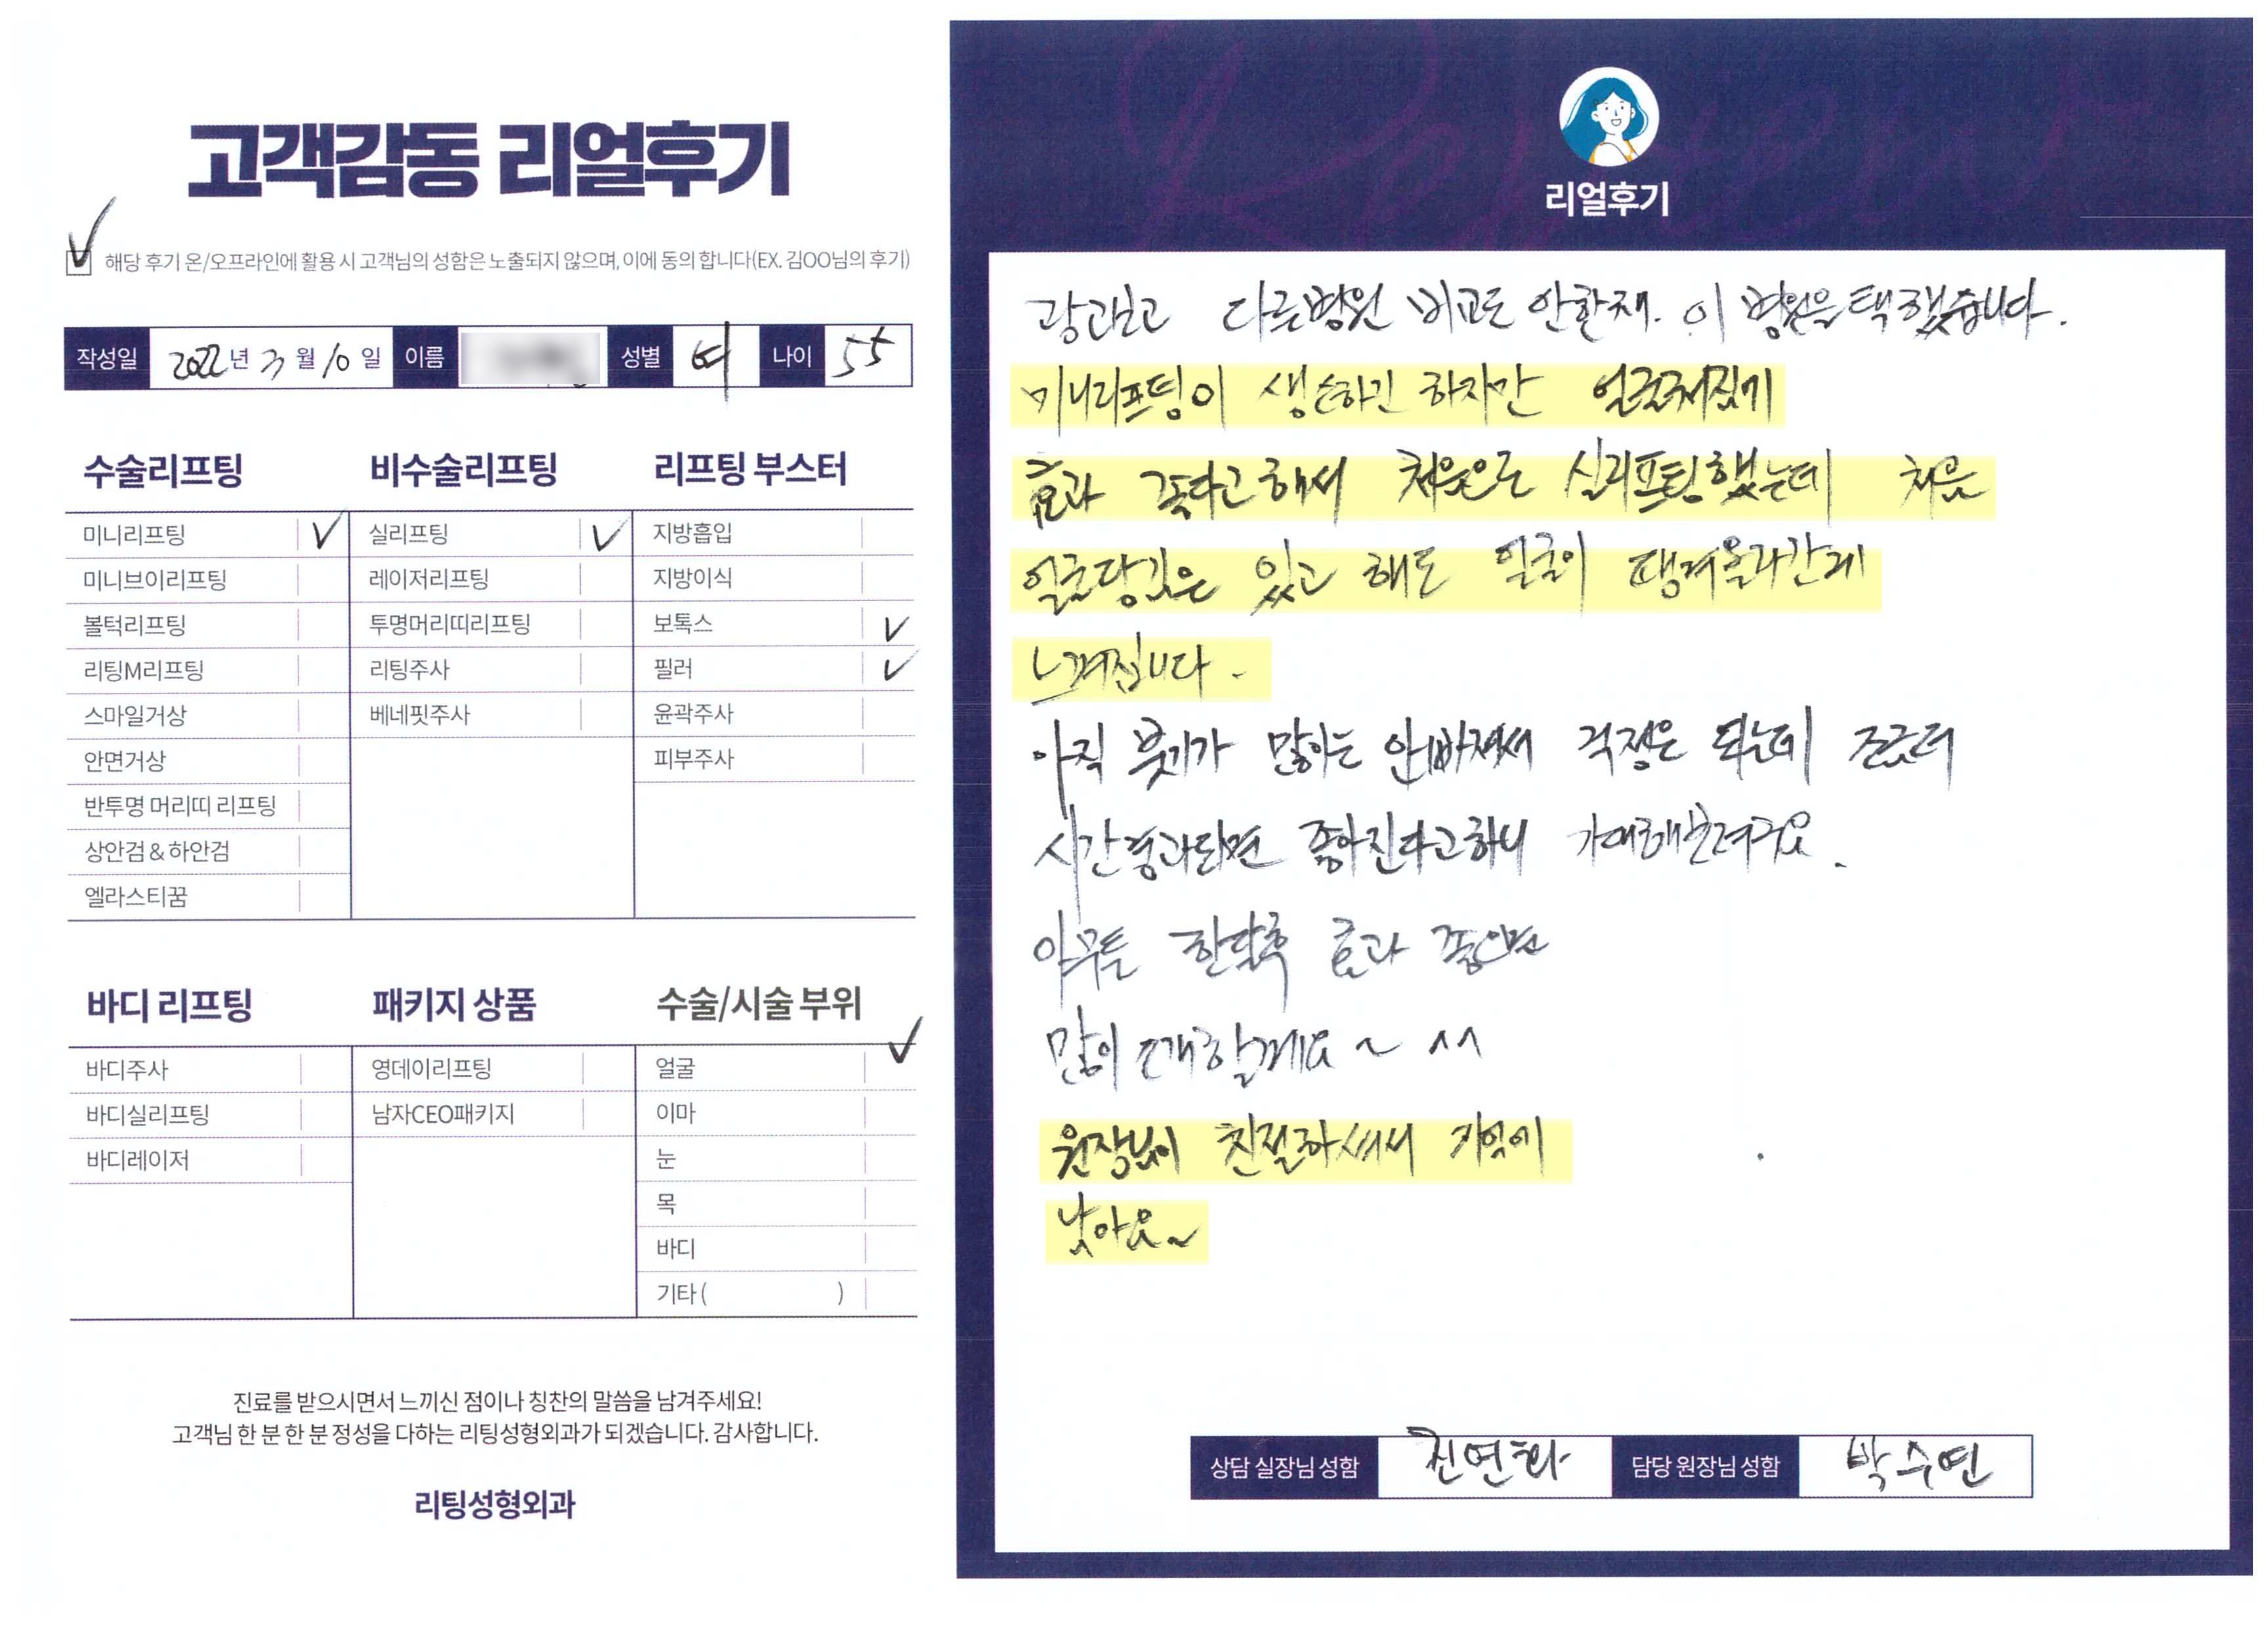 고객감동 리얼후기
해당 후기 온/오프라인에 활용 시 고객님의 성함은 노출되지 않으며, 이에 동의 합니다(EX. 김OO님의 후기)
작성일 2022년 3월 10일 이름 성별 여 나이 55
수술리프팅
미니리프팅
미니브이리프팅
볼턱리프팅
리팅M리프팅
스마일거상
안면거상
반투명 머리띠 리프팅
상안검&하안검
엘라스티꿈
비수술리프팅
실리프팅
레이저리프팅
투명머리띠리프팅
리팅주사
베네핏주사
리프팅 부스터
지방흡입
지방이식
보톡스
필러
윤곽주사
피부주사
바디 리프팅
바디주사
바디실리프팅
바디레이저
패키지 상품
영데이리프팅
남자CEO패키지
수술/시술 부위
얼굴
이마
눈
목
바디
기타 ( )
진료를 받으시면서 느끼신 점이나 칭찬의 말씀을 남겨주세요!
고객님 한 분 한 분 정성을 다하는 리팅성형외과가 되겠습니다. 감사합니다.
리팅성형외과
리얼후기
다른병원 비교도 안한채. 이 병원을 택했습니다.
미니리프팅이 생소하긴 하지만
효과 좋다고해서 처음으로 실리프팅했는데 처음
얼굴당김은 있고 해도 얼굴이 땡겨올라간게
느껴집니다.
아직 붓기가 많이는 안빠져서 걱정은 되는데 조금더
시간경과되면 좋아진다고하니 기대해볼려구요.
아무튼 한달후 효과 좋으면
많이 소개할께요~ ^^
원장님이 친절하셔서 기억에
남아요~
상담 실장님 성함 진연화 담당 원장님 성함 박수연